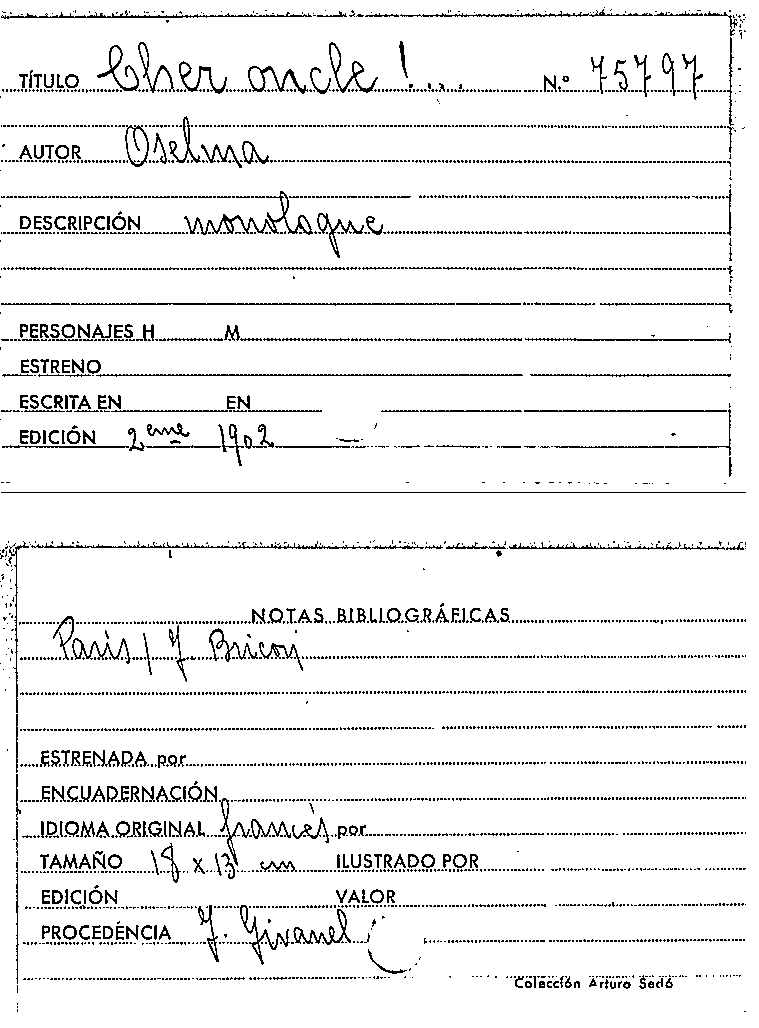 TÍTULO Cher oncle !... N.º 75797
AUTOR Oselma
DESCRIPCIÓN monologue
PERSONAJES H M
ESTRENO
ESCRITA EN EN
EDICIÓN 2eme 1902
NOTAS BIBLIOGRÁFICAS
Paris / J. Bricon
ESTRENADA por
ENCUADERNACIÓN
IDIOMA ORIGINAL francés por
TAMAÑO 18 x 13 cm ILUSTRADO POR
EDICIÓN VALOR
PROCEDÉNCIA J. Givanel
Colección Arturo Sedó